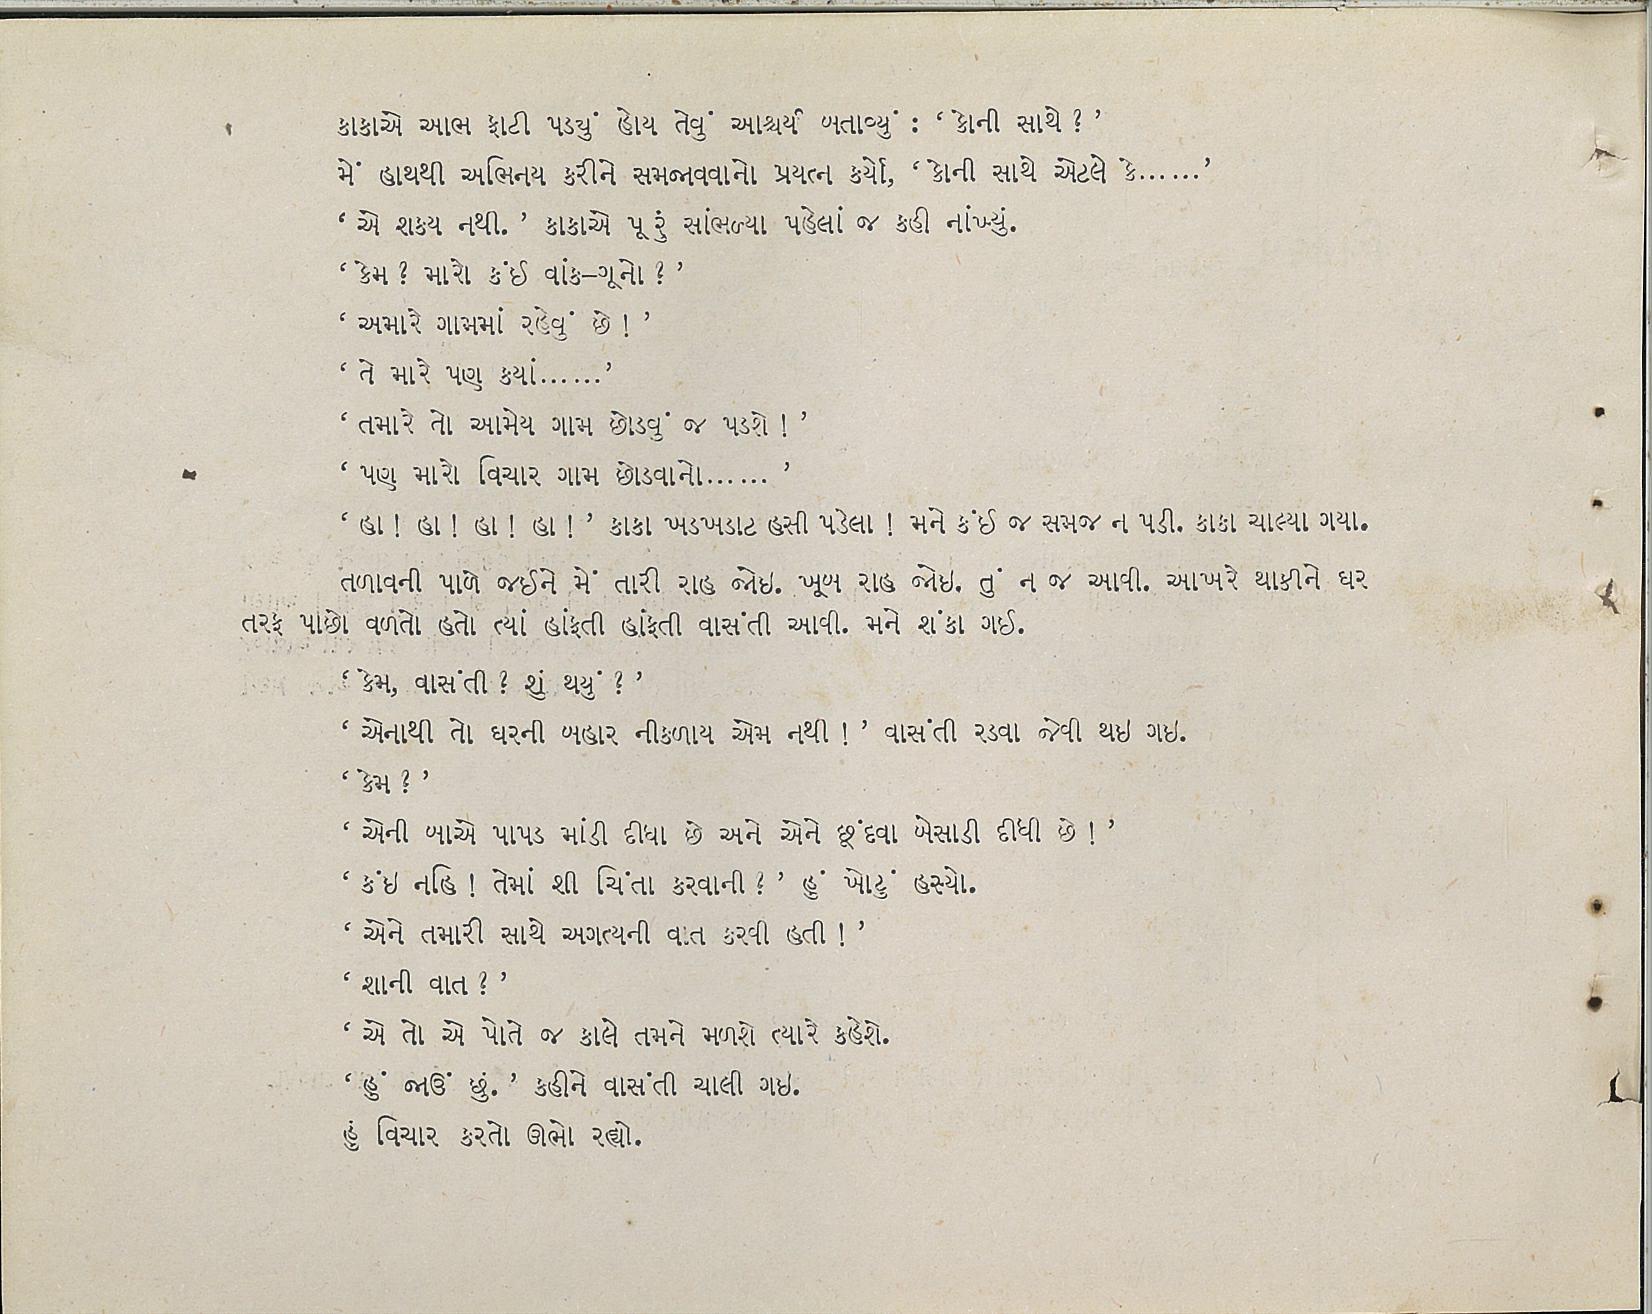 કાકાએ આભ ફાટી પડ્યું હોય તેવું આશ્ચર્ય બતાવ્યું : ‘ કોની સાથે ? ’
મેં હાથથી અભિનય કરીને સમજાવવાનો પ્રયત્ન કર્યો, ‘ કોની સાથે એટલે કે......’
‘ એ શકય નથી. ’ કાકાએ પૂરું સાંભળ્યા પહેલાં જ કહી નાંખ્યું.
‘ કેમ ? મારો કંઈ વાંક–ગૂનો ? ’
‘ અમારે ગામમાં રહેવું છે ! ’
‘ તે મારે પણ કયાં......’
‘ તમારે તો આમેય ગામ છોડવું જ પડશે ! ’
‘ પણ મારો વિચાર ગામ છોડવાનો...... ’
‘ હા ! હા ! હા ! હા ! ’ કાકા ખડખડાટ હસી પડેલા ! મને કંઈ જ સમજ ન પડી. કાકા ચાલ્યા ગયા.
તળાવની પાળે જઈને મેં તારી રાહ જોઇ. ખૂબ રાહ જોઇ. તું ન જ આવી. આખરે થાકીને ઘર
તરફ પાછો વળતો હતો ત્યાં હાંફતી હાંફતી વાસંતી આવી. મને શંકા ગઈ.
‘ કેમ, વાસંતી ? શું થયું ? ’
‘ એનાથી તો ઘરની બહાર નીકળાય એમ નથી ! ’ વાસંતી રડવા જેવી થઇ ગઇ.
‘ કેમ ? ’
‘ એની બાએ પાપડ માંડી દીધા છે અને એને છૂંદવા બેસાડી દીધી છે ! ’
‘ કંઇ નહિ ! તેમાં શી ચિંતા કરવાની ? ’ હું ખોટું હસ્યો.
‘ એને તમારી સાથે અગત્યની વાત કરવી હતી ! ’
‘ શાની વાત ? ’
‘ એ તો એ પોતે જ કાલે તમને મળશે ત્યારે કહેશે.
‘ હું જાઉં છું. ’ કહીને વાસંતી ચાલી ગઇ.
હું વિચાર કરતો ઊભો રહ્યો.